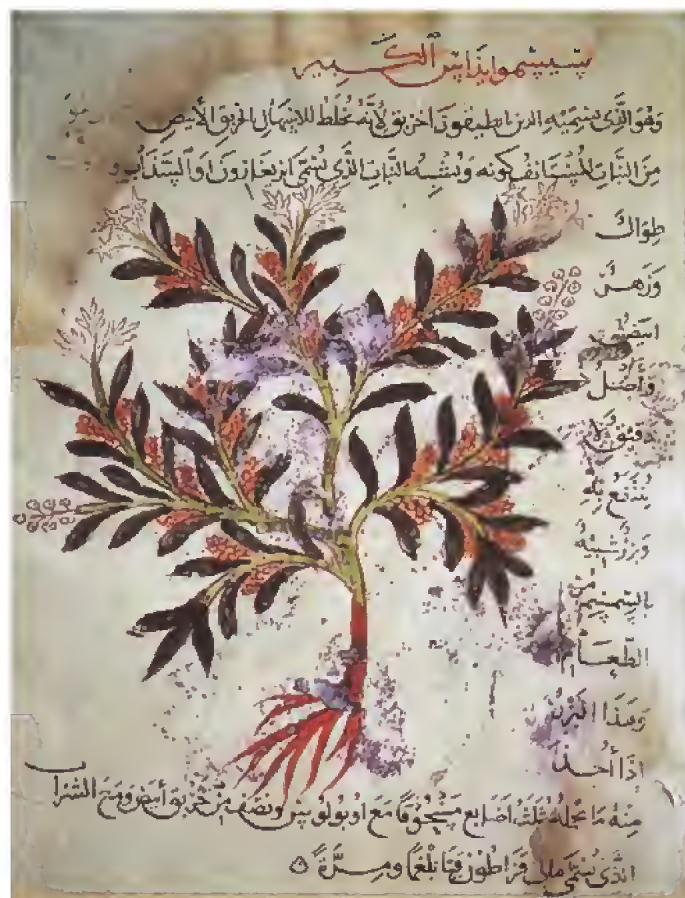 سيسمويذاس الكبير
وهو الذي يسميه الذين انطيقون اخربق لانه يخلط للاسهال الخربق الأبيض
من النبات المستانف كونه ويشبه النبات الذي يسمى ايريغارون او السذاب و
طوال
وزهر
ابيض
واصل
دقيق لا
ينتفع به
وبزر شبيه
بالسمسم مر
الطعام
وهذا البزر
إذا أخذ
منه ما تحمله ثلث أصابع مسحوقا مع اوبولوس ونصف من خربق أبيض ومع الشراب
الذي يسمى مالي قراطون قيا بلغما ومرة